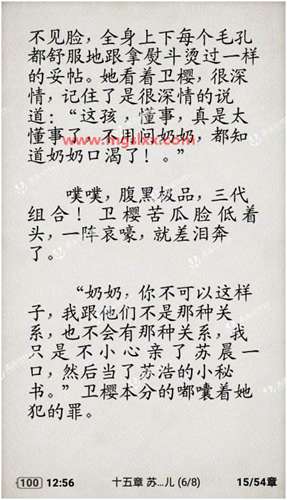 不见脸，全身上下每个毛孔
都舒服地跟拿熨斗烫过一样
的妥帖。她看着卫樱，很深
情，记住了是很深情的说
道：“这孩，懂事，真是太
懂事了，不用问奶奶，都知
道奶奶口渴了！。”
www.mgslxx.com
噗噗，腹黑极品，三代
组合！卫樱苦瓜脸低着
头，一阵哀嚎，就差泪奔
了。
“奶奶，你不可以这样
子，我跟他们不是那种关
系，也不会有那种关系，我
只是不小心亲了苏晨一
口，然后当了苏浩的小秘
书。”卫樱本分的嘟囔着她
犯的罪。
100 12:56 十五章 苏...儿 (6/8) 15/54章